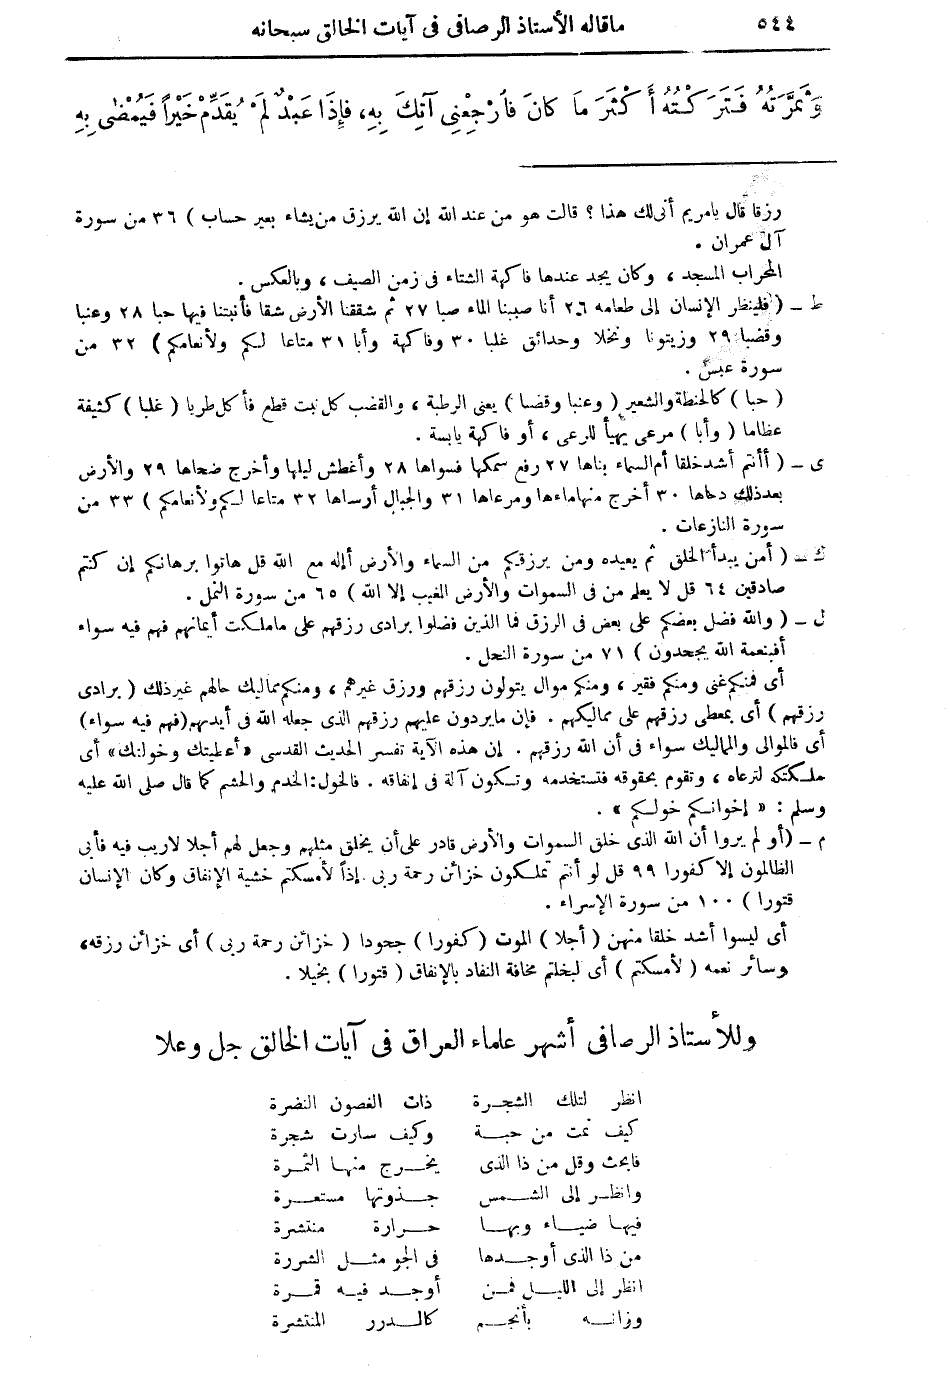 ٥٤٤ ماقاله الأستاذ الرصافى فى آيات الخالق سبحانه
وَثَمَّرْتُهُ فَتَرَكْتُهُ أَكْثَرَ مَا كَانَ فَارْجِعْنِى آتِكَ بِهِ، فَإِذَا عَبْدٌ لَمْ يُقَدِّمْ خَيْراً فَيُمْضٰى بِهِ
رزقا قال يامريم أنى لك هذا ؟ قالت هو من عند الله إن الله يرزق من يشاء بغير حساب ) ٣٦ من سورة
آل عمران .
المحراب المسجد ، وكان يجد عندها فاكهة الشتاء فى زمن الصيف ، وبالعكس .
ط ــ ( فلينظر الإنسان إلى طعامه ٢٦ أنا صببنا الماء صبا ٢٧ ثم شققنا الأرض شقا فأنبتنا فيها حبا ٢٨ وعنبا
وقضبا ٢٩ وزيتونا ونخلا وحدائق غلبا ٣٠ وفاكهة وأبا ٣١ متاعا لكم ولأنعامكم ) ٣٢ من
سورة عبس .
( حبا ) كالحنطة والشعير ( وعنبا وقضبا ) يعنى الرطبة ، والقضب كل نبت قطع فأكل طريا ( غلبا ) كثيفة
عظاما ( وأبا ) مرعى يهيأ للرعى ، أو فاكهة يابسة .
ى ــ ( أأنتم أشد خلقا أم السماء بناها ٢٧ رفع سمكها فسواها ٢٨ وأغطش ليلها وأخرج ضحاها ٢٩ والأرض
بعد ذلك دحاها ٣٠ أخرج منها ماءها ومرعاها ٣١ والجبال أرساها ٣٢ متاعا لكم ولأنعامكم ) ٣٣ من
سورة النازعات .
ك ــ ( أمن يبدأ الخلق ثم يعيده ومن يرزقكم من السماء والأرض أإله مع الله قل هاتوا برهانكم إن كنتم
صادقين ٦٤ قل لا يعلم من فى السموات والأرض الغيب إلا الله ) ٦٥ من سورة النمل .
ل ــ ( والله فضل بعضكم على بعض فى الرزق فما الذين فضلوا برادى رزقهم على ماملكت أيمانهم فهم فيه سواء
أفبنعمة الله يجحدون ) ٧١ من سورة النحل .
أى فمنكم غنى ومنكم فقير ، ومنكم موال يتولون رزقهم ورزق غيرهم ، ومنكم مماليك حالهم غير ذلك ( برادى
رزقهم ) أى بمعطى رزقهم على مماليكهم . فإن ما يردون عليهم رزقهم الذى جعله الله فى أيديهم (فهم فيه سواء)
أى فالموالى والمماليك سواء فى أن الله رزقهم . إن هذه الآية تفسر الحديث القدسى «أعطيتك وخولتك» أى
ملكتكه لترعاه ، وتقوم بحقوقه فتستخدمه وتكون آلة فى إنفاقه . فالخول : الخدم والحشم كما قال صلى الله عليه
وسلم : « إخوانكم خولكم » .
م ــ (أو لم يروا أن الله الذى خلق السموات والأرض قادر على أن يخلق مثلهم وجعل لهم أجلا لاريب فيه فأبى
الظالمون إلا كفورا ٩٩ قل لو أنتم تملكون خزائن رحمة ربى إذاً لأمسكتم خشية الإنفاق وكان الإنسان
قتورا ) ١٠٠ من سورة الإسراء .
أى ليسوا أشد خلقا منهن ( أجلا ) الموت (كفورا ) جحودا ( خزائن رحمة ربى ) أى خزائن رزقه،
وسائر نعمه ( لأمسكتم ) أى لبخلتم مخافة النفاد بالإنفاق ( قتورا ) بخيلا .
وللأستاذ الرصافى أشهر علماء العراق فى آيات الخالق جل وعلا
انظر لتلك الشجرة ذات الغصون النضرة
كيف نمت من حبة وكيف سارت شجرة
فابحث وقل من ذا الذى يخرج منها الثمرة
وانظر إلى الشمس جذوتها مستعرة
فيها ضياء وبها حرارة منتشرة
من ذا الذى أوجدها فى الجو مثل الشررة
انظر إلى الليل فمن أوجد فيه قمرة
وزانه بأنجم كالدرر المنتشرة